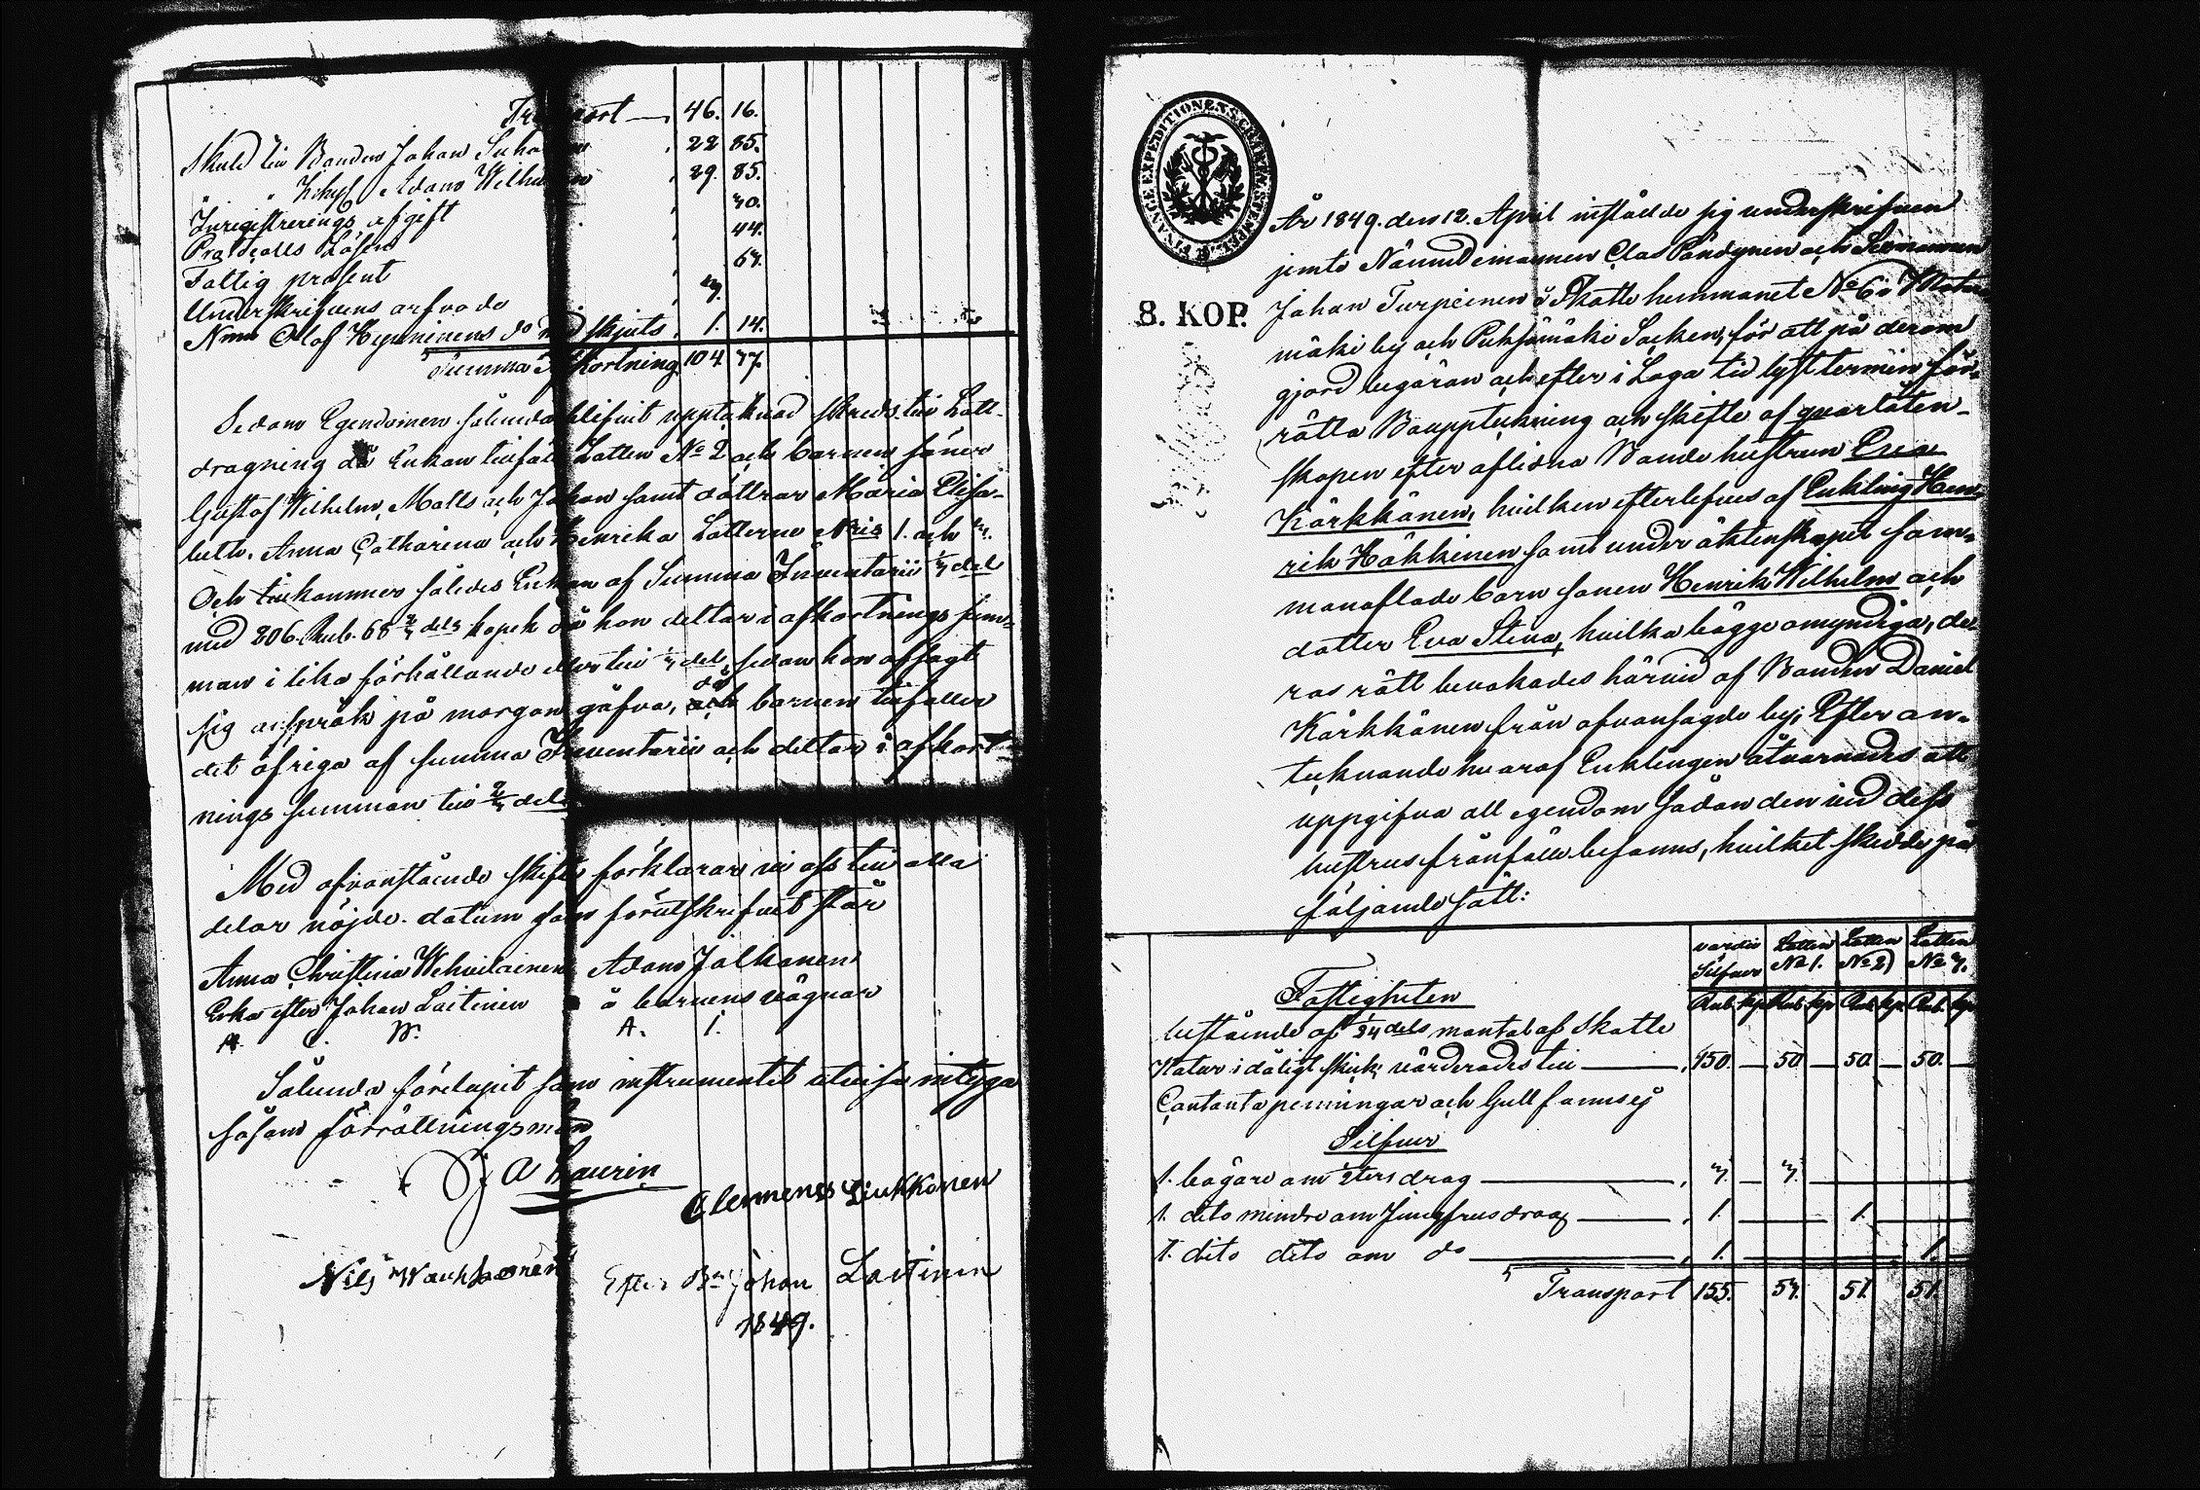 Transport 46. 16.
Skuld till Bonden Johan 22 85.
" " Adam 29. 85.
Inregistrerings afgift 30.
44.
Fattig procent 67.
Underskrifvens arfvode 3.
Nmn Olof Hyvärinens do med skjuts 1. 14.
Summa Afkortning 104 77.
Sedan Egendomen sålunda blifvit upptecknad skreds till Lott-
dragning då Enkan tillföll Lotten No 2 och barnen söner
Gustaf Wilhelm, Matts och Johan samt döttrar Maria Elisa-
beth, Anna Catharina och Henrika Lotterne Nris 1. och 3.
Och tillkommer således Enkan af Summa Inventarii 1/3 del
med 206. Rub. 68 2/3 dels kopek då hon deltar i afkortnings sum-
man i lika förhållande eller till 1/3 del, sedan hon afsagt
sig anspråk på morgon gåfva, då barnen tillfaller
det öfriga af summa Inventarii och deltar i afkort-
nings summan till 2/3 del
Med ofvanstående skifte förklarar vi oss till alla
delar nöjde. datum som förutskrifvit står
Anna Christina Wehviläinen Adam Jalkanen
Enka efter Johan Laitinen å barnens vägnar
A. C. W. A. J.
Sålunda förelupit som instrumentet utvisar intyga
såsom förrättningsmän
J A Laurin
Clemens Liukkonen
Nils Wauhkonen Efter Bn Johan Laitinen
1849.
FINANCE EXPEDITIONENS CHARTÆ STEMPEL
8. KOP.
År 1849. den 12. April inställde sig underskrifven
jemte Nämndemannen Clas Pöndynen och
Johan Turpeinen å Skatte hemmanet No 6 i
mäki by och Pieksämäki Socken, för att på derom
gjord begäran och efter i Laga tid lyst termin för-
rätta Bouppteckning och skifte af qvarlåten-
skapen efter aflidna Bonde hustrun Eva
Kärkkänen, hvilken efterlefves af Enkling Hen-
rik Häkkinen samt under äktenskapet sam-
manaflade barn sonen Henrik Wilhelm och
dotter Eva Stina, hvilka bägge omyndiga, de-
ras rätt bevakades härvid af Bonden Daniel
Kärkkänen från ofvansagde by, Efter an-
tecknande hvaraf Enklingen åtvarnades att
uppgifva all egendom sådan den vid dess
hustrus frånfälle befanns, hvilket skedde på
följande sätt:
värdie Silfver Lotten No 1. Lotten No 2) Lotten No 3.
Rub kp Rub kp Rub kp Rub. kp
Fastigheten
bestående af 1/24 dels mantal af skatte
Natur i dåligt skick värderades till 150. — 50 — 50 — 50. —
Contanta penningar och Gull fanns ej
Silfver
1. bägare om 2ters drag 3. — 3. —
1. dito mindre om Jungfrus drag 1. 1.
1. dito dito om do 1. 1.
Transport 155. 53. 51. 51.